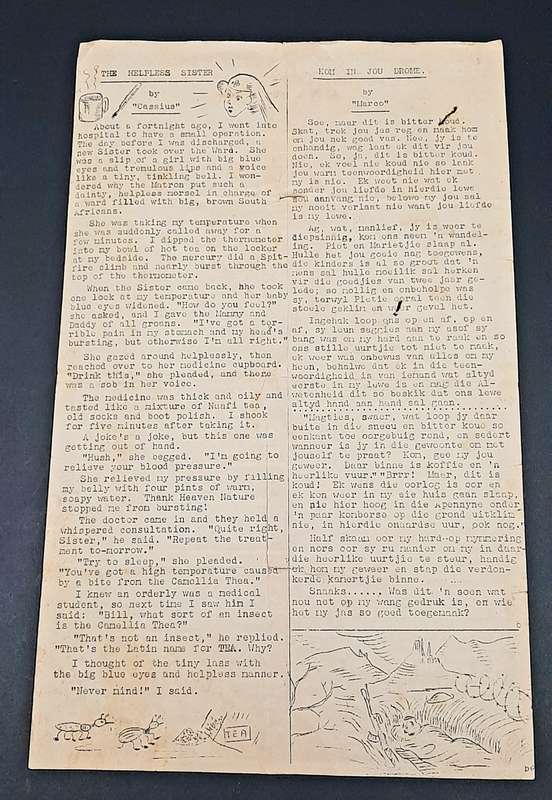 THE HELPLESS SISTER
by
"Cassius"
About a fortnight ago, I went into
hospital to have a small operation.
The day before I was discharged, a
new Sister took over the Ward. She
was a slip of a girl with big blue
eyes and tremulous lips and a voice
like a tiny, tinkling bell. I won-
dered why the Matron put such a
dainty, helpless morsel in charge of
a ward filled with big, brown South
Africans.
She was taking my temperature when
she was suddenly called away for a
few minutes. I dipped the thermometer
into my bowl of hot tea on the locker
at my bedside. The mercury did a Spit-
fire climb and nearly burst through the
top of the thermometer.
When the Sister came back, she took
one look at my temperature and her baby
blue eyes widened. "How do you feel?"
she asked, and I gave the Mammy and
Daddy of all groans. "I've got a ter-
rible pain in my stomach and my head's
bursting, but otherwise I'm all right."
She gazed around helplessly, then
reached over to her medicine cupboard.
"Drink this," she pleaded, and there
was a sob in her voice.
The medicine was thick and oily and
tasted like a mixture of Naafi tea,
old socks and boot polish. I shook
for five minutes after taking it.
A joke's a joke, but this one was
getting out of hand.
"Hush," she begged. "I'm going to
relieve your blood pressure."
She relieved my pressure by filling
my belly with four pints of warm,
soapy water. Thank Heaven Nature
stopped me from bursting!
The doctor came in and they held a
whispered consultation. "Quite right,
Sister," he said. "Repeat the treat-
ment to-morrow."
"Try to sleep," she pleaded.
"You've got a high temperature caused
by a bite from the Camellia Thea."
I knew an orderly was a medical
student, so next time I saw him I
said: "Bill, what sort of an insect
is the Camellia Thea?"
"That's not an insect," he replied.
"That's the Latin name for TEA. Why?
I thought of the tiny lass with
the big blue eyes and helpless manner.
"Never mind!" I said.
TEA
KOM IN JOU DROME.
by
"Marco"
Soe, maar dit is bitter koud.
Skat, trek jou jas reg en maak hom
en jou nek goed vas. Nee, jy is te
onhandig, wag laat ek dit vir jou
doen. So, ja, dit is bitter koud.
Nie, ek voel nie koud nie so lank
jou warm teenwoordigheid hier met
my is nie. Ek weet nie wat ek
sonder jou liefde in hierdie lewe
sou aanvang nie, belowe my jou sal
my nooit verlaat nie want jou liefde
is my lewe.
Ag, wat, manlief, jy is weer te
diepsinnig, kom ons neem 'n wandel-
ing. Piet en Marietjie slaap al.
Hulle het jou goeie nag toegewens,
die kinders is al so groot dat 'n
mens sal hulle moeilik sal herken
vir die goedjies van twee jaar ge-
lede; so nollig en onbeholpe was
sy, terwyl Pietie oral teen die
stoele geklim en weer geval het.
Ingehaak loop ons op en af, op en
af, sy leun saggies aan my asof sy
bang was om my hard aan te raak en so
ons stille uurtjie tot niet te maak,
ek weer was onbewus van alles om my
heen, behalwe dat ek in die teen-
woordigheid is van iemand wat altyd
eerste in my lewe is en mag die Al-
wetenheid dit so beskik dat ons lewe
altyd hand aan hand sal gaan.
"Magties, swaer, wat loop jy daar
buite in die sneeu en bitter koue so
eenkant toe oorgebuig rond, en sedert
wanneer is jy in die gewoonte om met
jouself te praat? Kom, gee my jou
geweer. Daar binne is koffie en 'n
heerlike vuur." "Brrr! Maer, dit is
koud! Ek wens die oorlog is oor en
ek kon weer in my eie huis gaan slaap,
en nie hier hoog in die Apennyne onder
'n paar komberse op die grond uitklim
nie, in hierdie onaardse uur, pok nog."
Half skaam oor my hard-op mymering
en nors oor sy ru manier om my in daar-
die heerlike uurtjie te steur, handig
ek hom my geweer en stap die verdon-
kerde kamertjie binne.
Snaaks...... Was dit 'n soen wat
nou net op my wang gedruk is, en wie
het my jas so goed toegemaak?